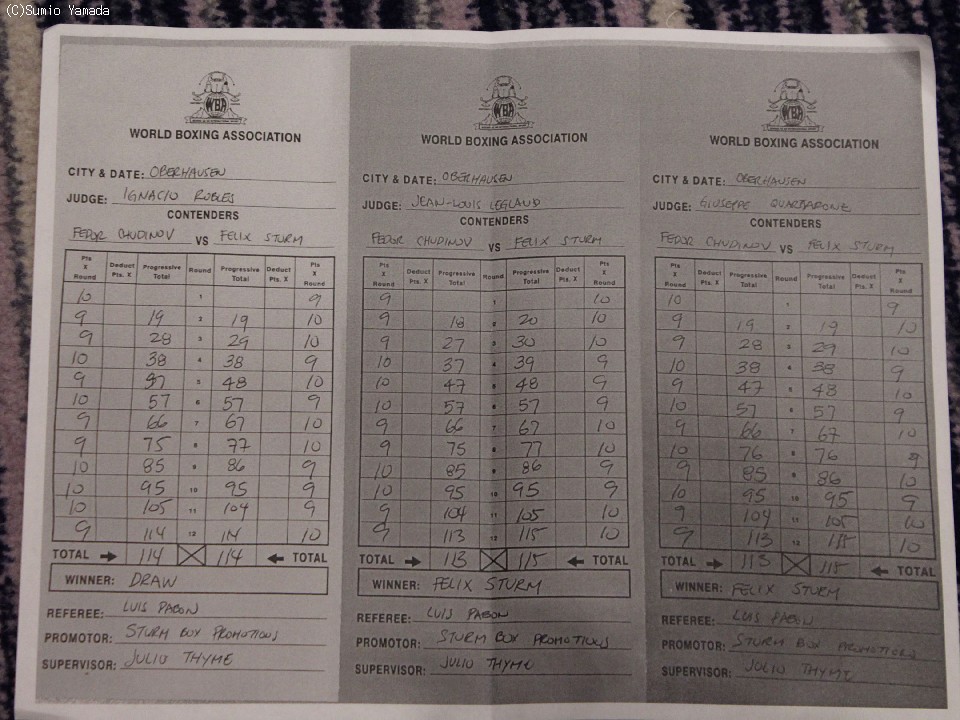 (C)Sumio Yamada
WBA
WORLD BOXING ASSOCIATION
CITY & DATE: OBERHAUSEN
JUDGE: IGNACIO ROBLES
CONTENDERS
FEDOR CHUDINOV VS FELIX STURM
Pts X Round Deduct Pts. X Progressive Total Round Progressive Total Deduct Pts. X Pts X Round
10 1 9
9 19 2 19 10
9 28 3 29 10
10 38 4 38 9
9 47 5 48 10
10 57 6 57 9
9 66 7 67 10
9 75 8 77 10
10 85 9 86 9
10 95 10 95 9
10 105 11 104 9
9 114 12 114 10
TOTAL 114 114 TOTAL
WINNER: DRAW
REFEREE: LUIS PABON
PROMOTOR: STURM BOX PROMOTIONS
SUPERVISOR: JULIO THYME
WBA
WORLD BOXING ASSOCIATION
CITY & DATE: OBERHAUSEN
JUDGE: JEAN-LOUIS LEGLAUD
CONTENDERS
FEDOR CHUDINOV VS FELIX STURM
Pts X Round Deduct Pts. X Progressive Total Round Progressive Total Deduct Pts. X Pts X Round
9 1 10
9 18 2 20 10
9 27 3 30 10
10 37 4 39 9
10 47 5 48 9
10 57 6 57 9
9 66 7 67 10
9 75 8 77 10
10 85 9 86 9
10 95 10 95 9
9 104 11 105 10
9 113 12 115 10
TOTAL 113 115 TOTAL
WINNER: FELIX STURM
REFEREE: LUIS PABON
PROMOTOR: STURM BOX PROMOTIONS
SUPERVISOR: JULIO THYME
WBA
WORLD BOXING ASSOCIATION
CITY & DATE: OBERHAUSEN
JUDGE: GIUSEPPE QUARTARONE
CONTENDERS
FEDOR CHUDINOV VS FELIX STURM
Pts X Round Deduct Pts. X Progressive Total Round Progressive Total Deduct Pts. X Pts X Round
10 1 9
9 19 2 19 10
9 28 3 29 10
10 38 4 38 9
9 47 5 48 10
10 57 6 57 9
9 66 7 67 10
10 76 8 76 9
9 85 9 86 10
10 95 10 95 9
9 104 11 105 10
9 113 12 115 10
TOTAL 113 115 TOTAL
WINNER: FELIX STURM
REFEREE: LUIS PABON
PROMOTOR: STURM BOX PROMOTIONS
SUPERVISOR: JULIO THYME